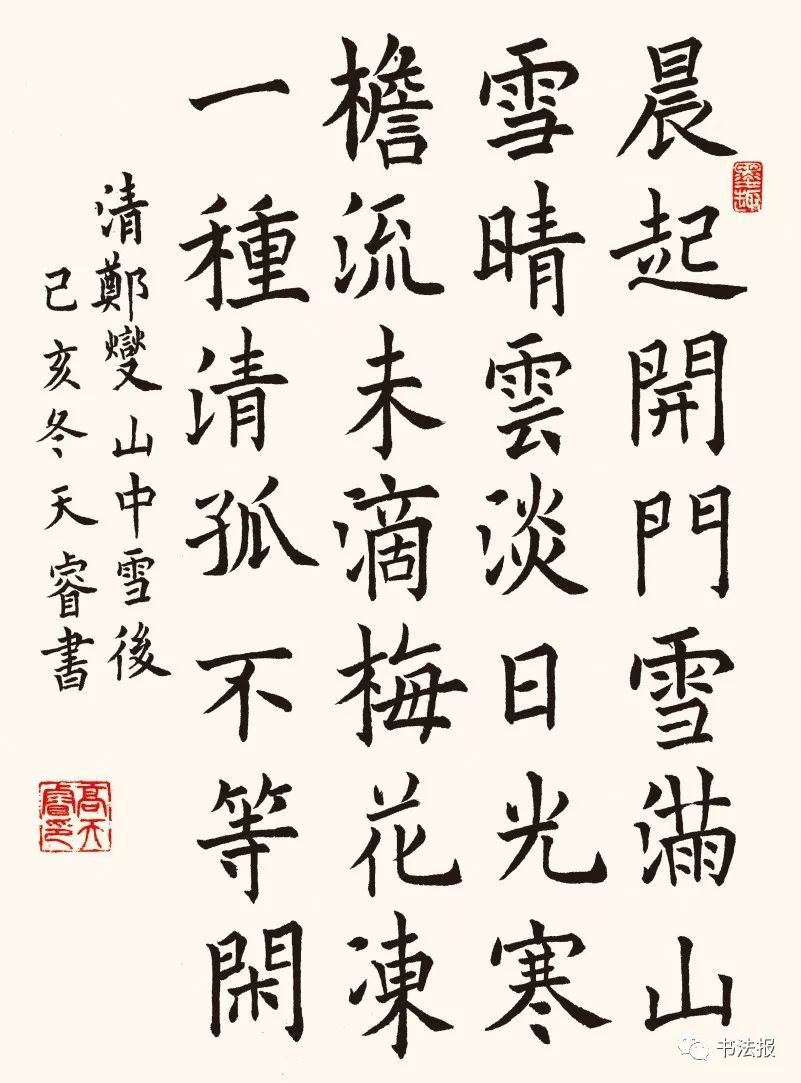 晨起開門雪滿山
雪晴雲淡日光寒
檐流未滴梅花凍
一種清孤不等閑
清鄭燮山中雪後
己亥冬天睿書
墨趣
高天睿印
书法报